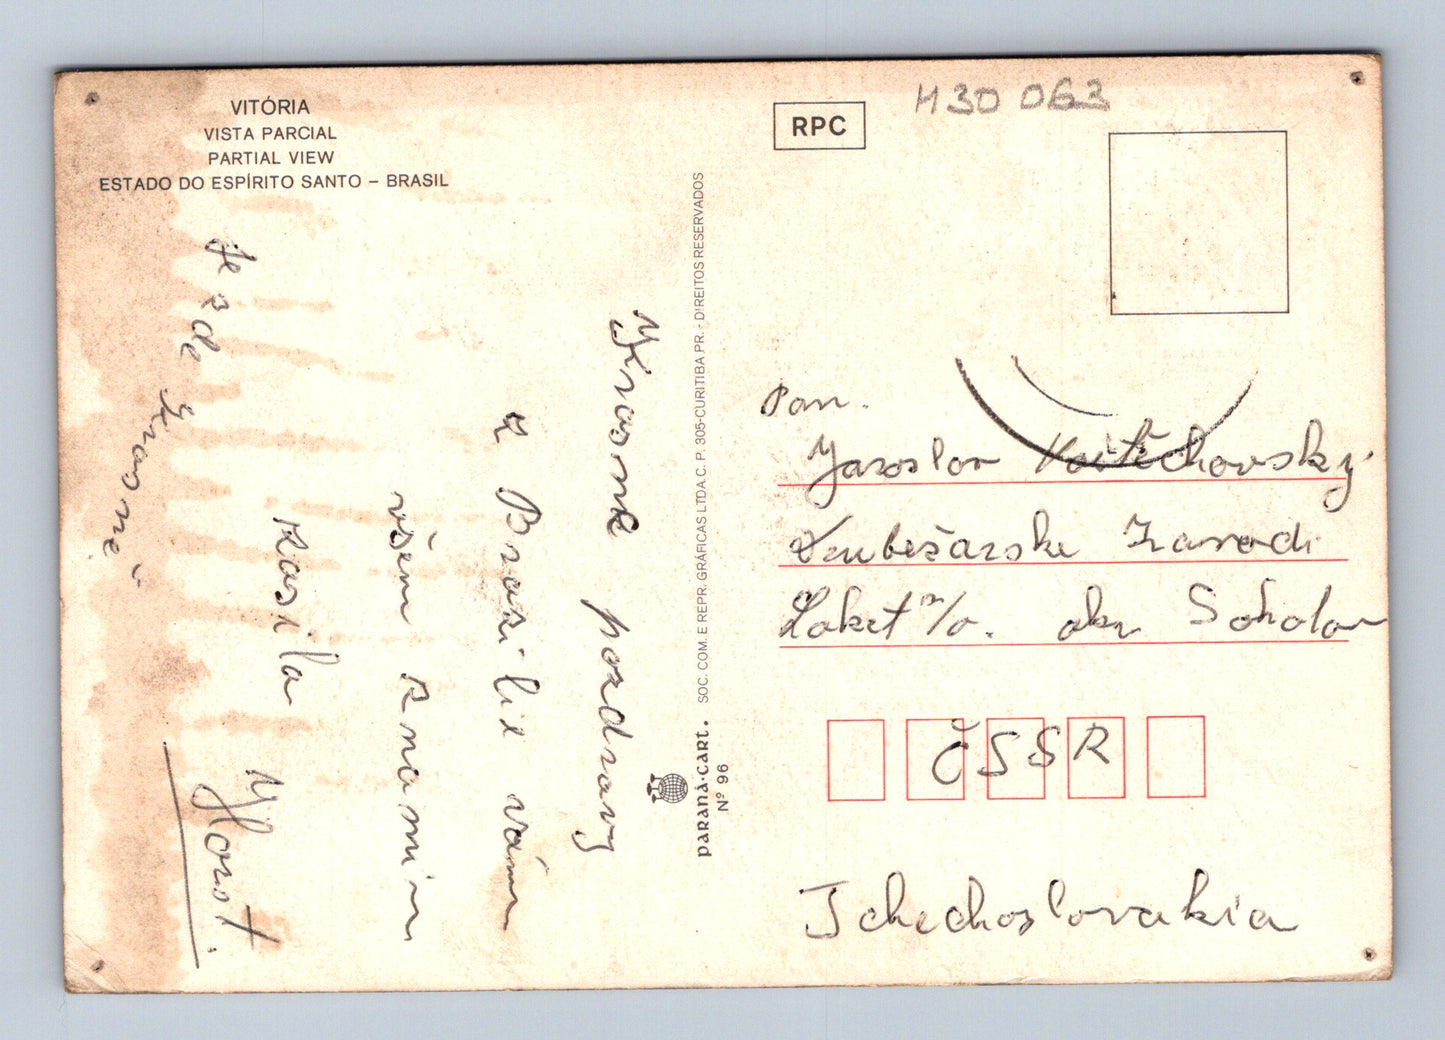 VITÓRIA
VISTA PARCIAL
PARTIAL VIEW
ESTADO DO ESPÍRITO SANTO – BRASIL
RPC
H30 063
Krasne pozdravy
z Brasilie vám
všem známim
zasila
Horst.
Je zde krasně
SOC. COM. E REPR. GRÁFICAS LTDA. C. P. 305-CURITIBA PR. - DIREITOS RESERVADOS
paraná-cart.
Nº 96
Pan.
Jaroslav Vojtěchovský
Zavodi
Loket n/o. okr Sokolov
ČSSR
Tchechoslovakia